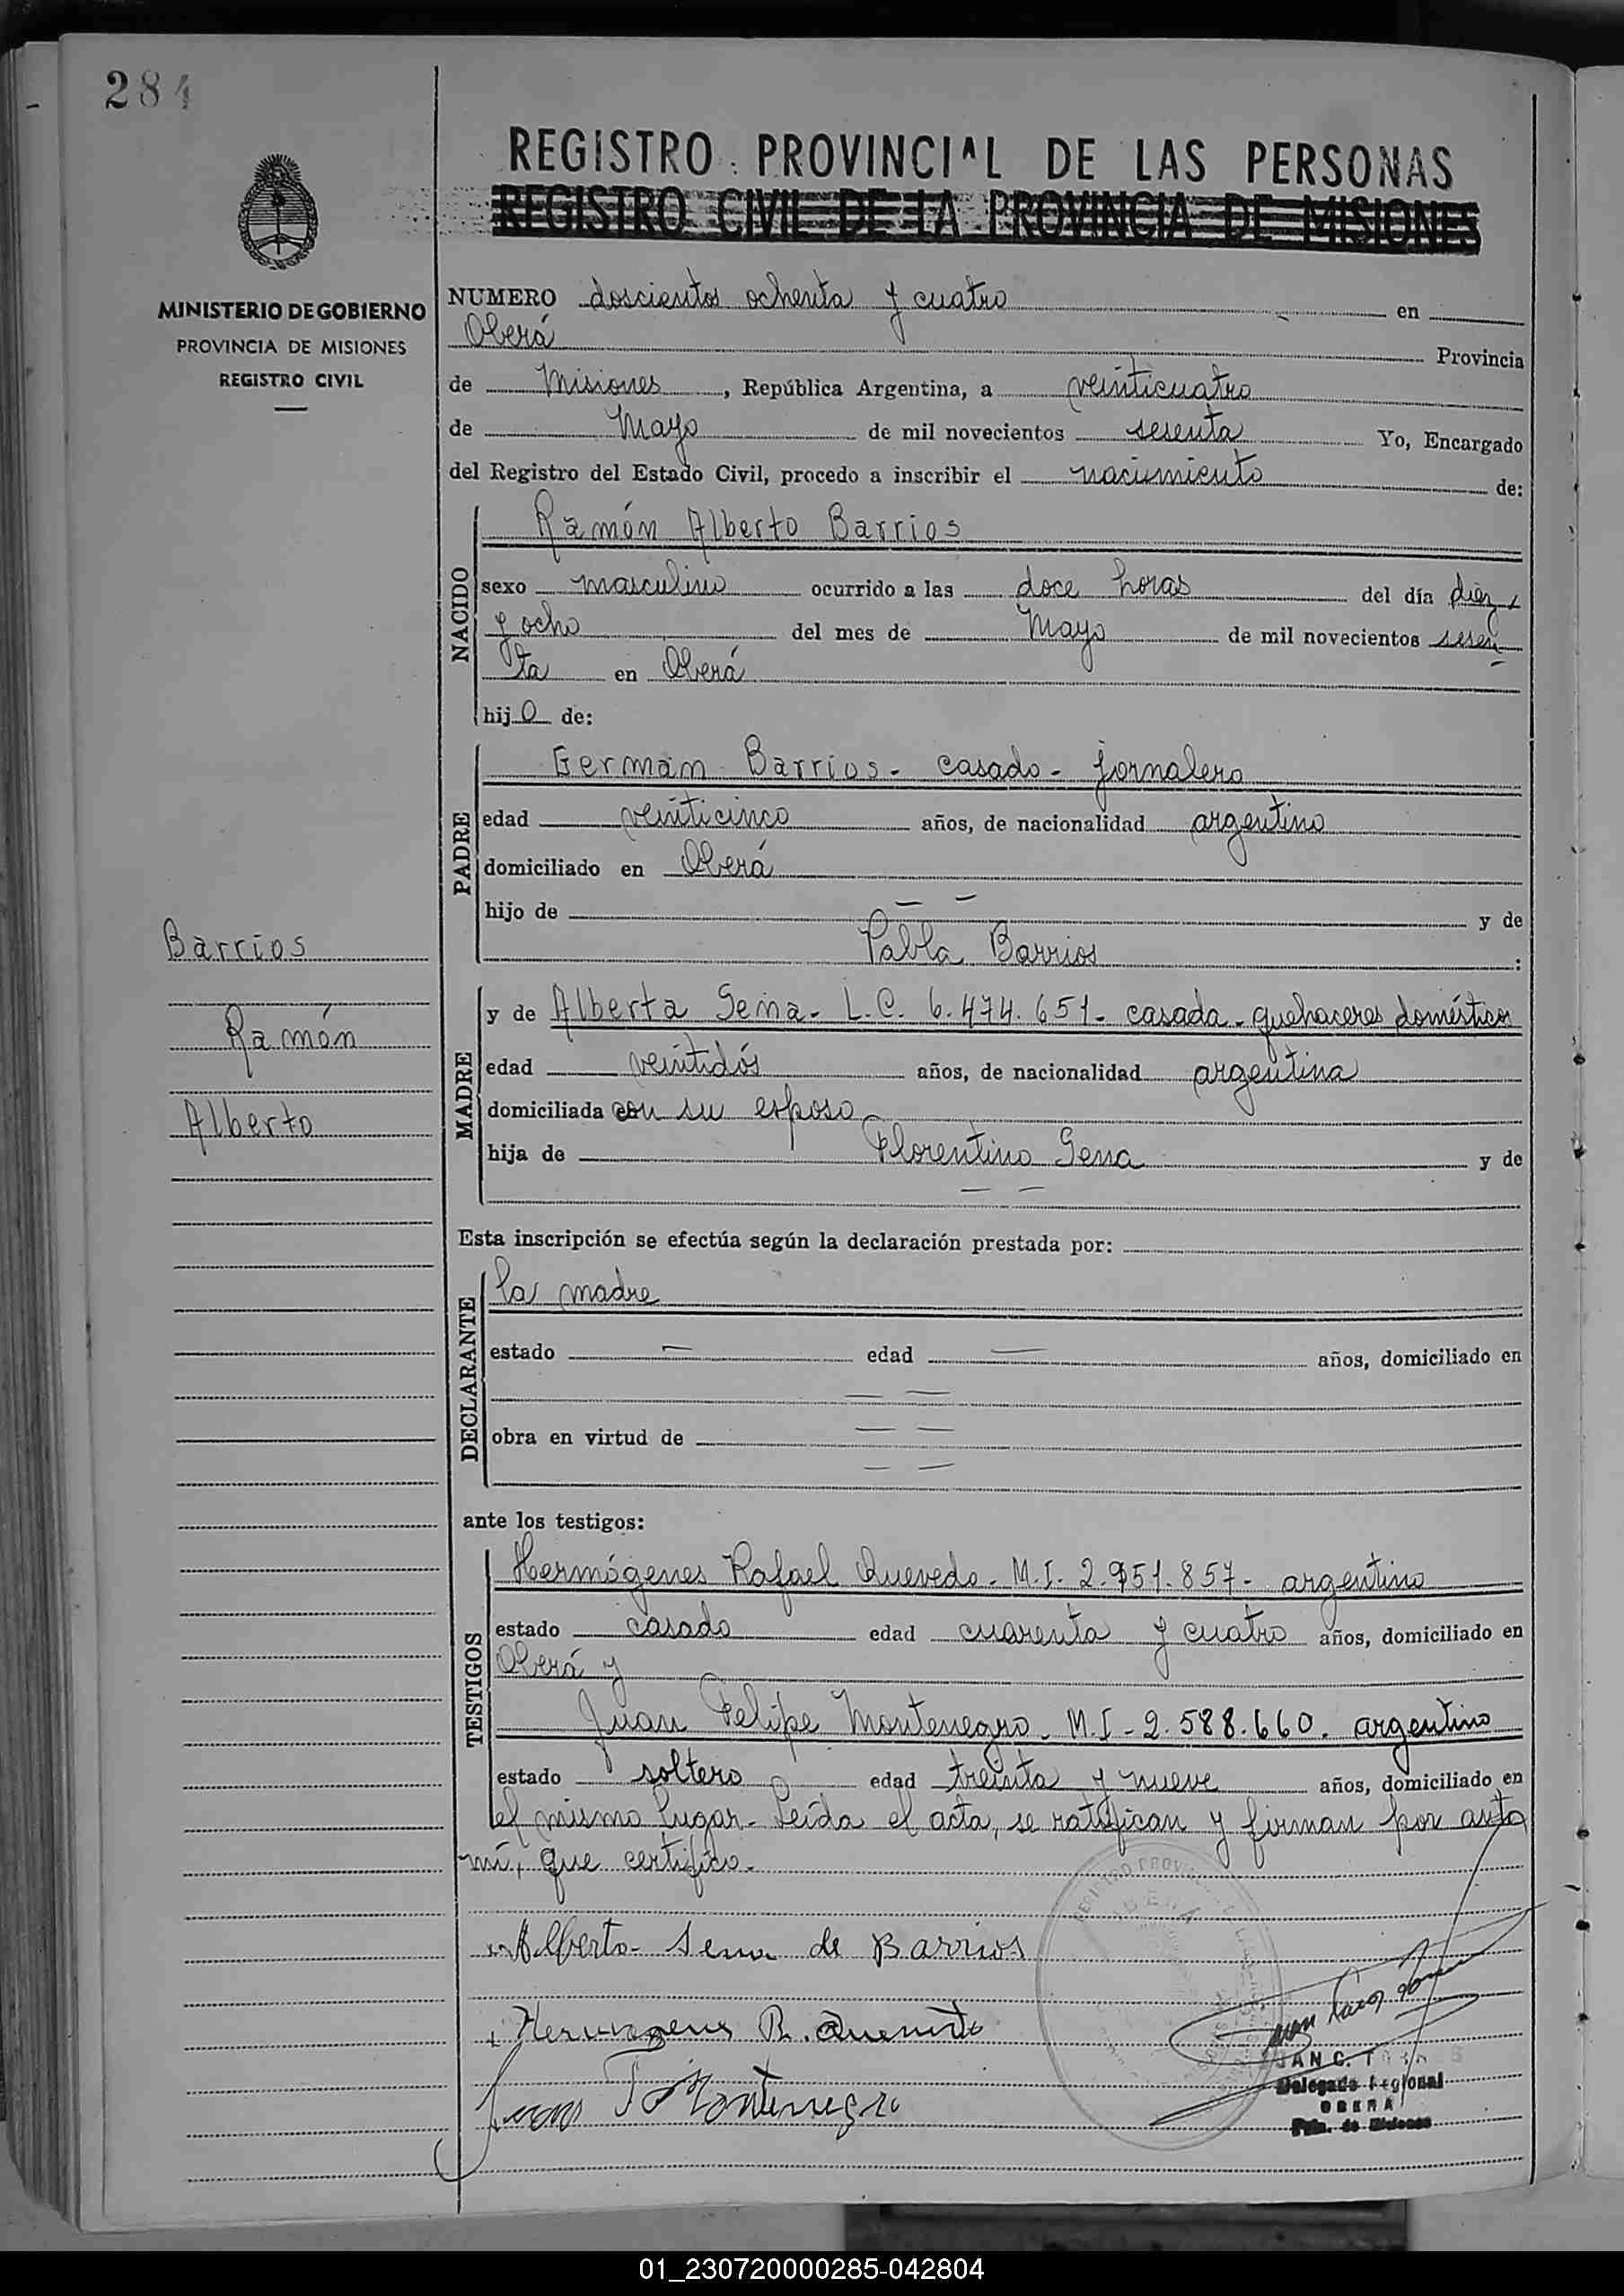 284
REGISTRO PROVINCIAL DE LAS PERSONAS
REGISTRO CIVIL DE LA PROVINCIA DE MISIONES
MINISTERIO DE GOBIERNO
PROVINCIA DE MISIONES
REGISTRO CIVIL
NUMERO doscientos ochenta y cuatro en
Oberá Provincia
de Misiones, República Argentina, a veinticuatro
de Mayo de mil novecientos sesenta Yo, Encargado
del Registro del Estado Civil, procedo a inscribir el nacimiento de:
NACIDO
Ramón Alberto Barrios
sexo masculino ocurrido a las doce horas del día diez
y ocho del mes de Mayo de mil novecientos sesen
ta en Oberá
hijo de:
PADRE
Germán Barrios - casado - jornalero
edad veinticinco años, de nacionalidad argentino
domiciliado en Oberá
hijo de — — y de
Pabla Barrios :
Barrios
Ramón
Alberto
MADRE
y de Alberta Sena - L.C. 6.474.651 - casada - quehaceres domésticos
edad veintidós años, de nacionalidad argentina
domiciliada con su esposo
hija de Florentino Sena y de
— —
Esta inscripción se efectúa según la declaración prestada por:
DECLARANTE
la madre
estado — edad — años, domiciliado en
— —
obra en virtud de — —
— —
ante los testigos:
TESTIGOS
Hermógenes Rafael Quevedo - M.I. 2.951.857 - argentino
estado casado edad cuarenta y cuatro años, domiciliado en
Oberá y
Juan Felipe Montenegro - M.I - 2.588.660. argentino
estado soltero edad treinta y nueve años, domiciliado en
el mismo lugar - Leída el acta, se ratifican y firman por ante
mí, que certifico.
Alberta Sena de Barrios
Hermogenes R. Quevedo
Juan F. Montenegro
JUAN C. TORRES
Delegado Regional
OBERA
Pcia. de Misiones
01_230720000285-042804